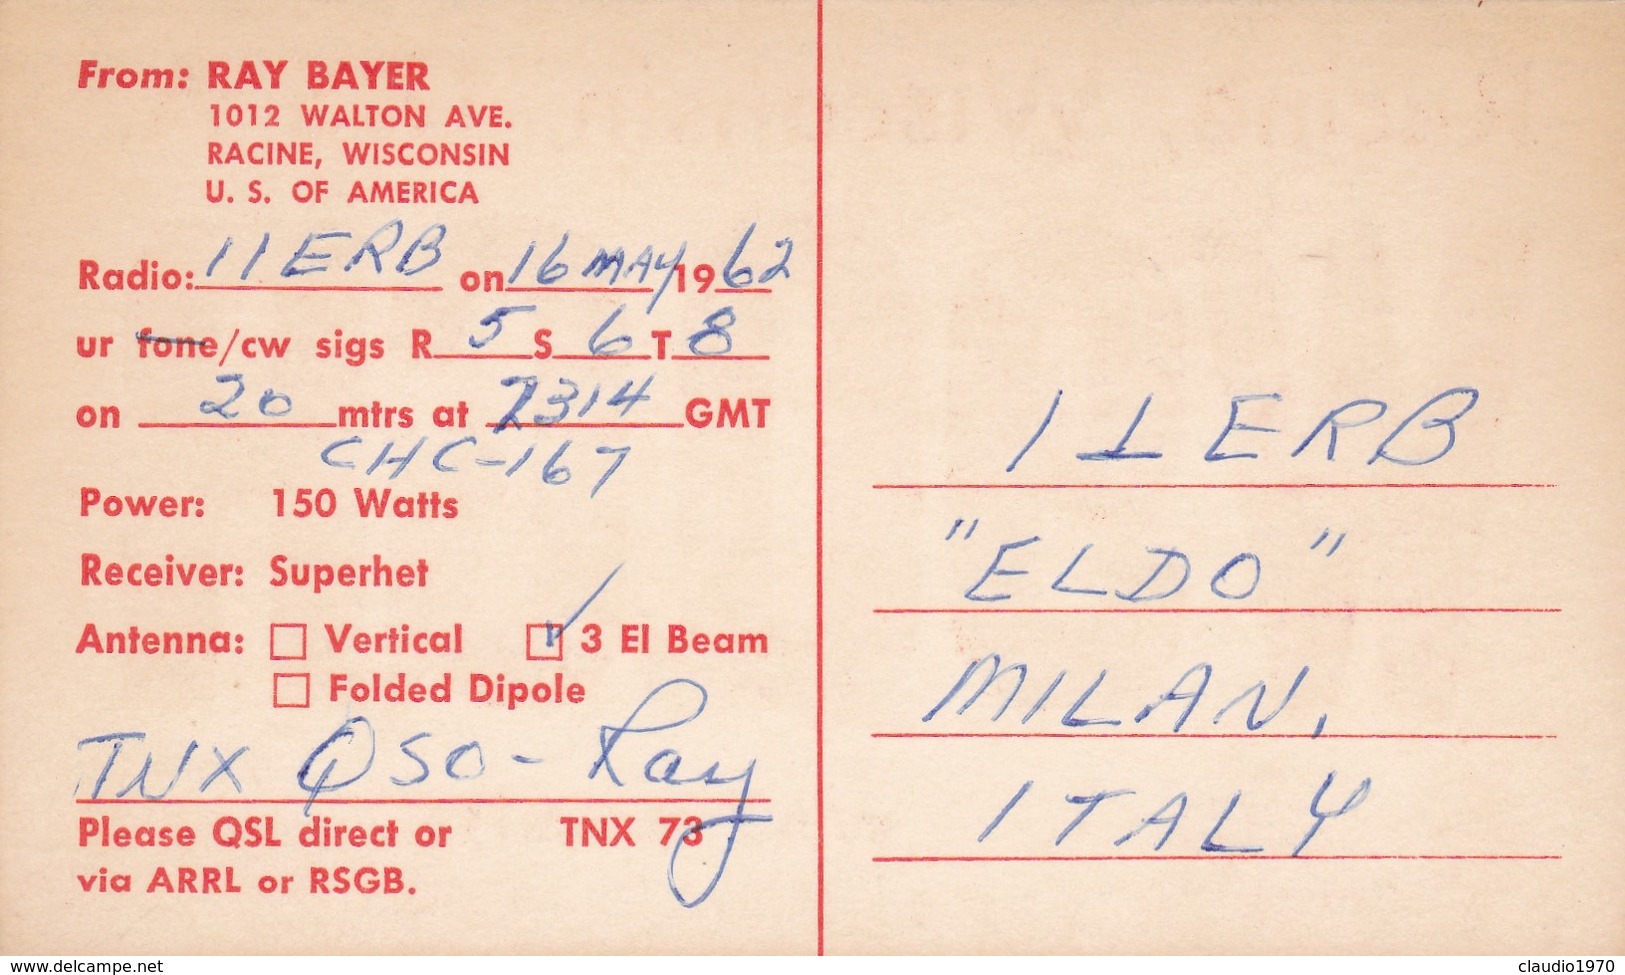 From: RAY BAYER
1012 WALTON AVE.
RACINE, WISCONSIN
U. S. OF AMERICA
Radio: 11ERB on 16 MAY 1962
ur fone/cw sigs R 5 S 6 T 8
on 20 mtrs at 2314 GMT
CHC-167
Power: 150 Watts
Receiver: Superhet
Antenna: Vertical 3 El Beam
Folded Dipole
TNX QSO - Ray
Please QSL direct or TNX 73
via ARRL or RSGB.
I1ERB
"ELDO"
MILAN,
ITALY
www.delcampe.net
claudio1970